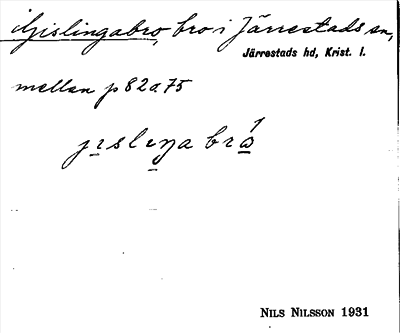 Gislingabro, bro i Järrestads sn,
Järrestads hd, Krist. l.
mellan p 82 o. 75
jıslıŋa brå
NILS NILSSON 1931